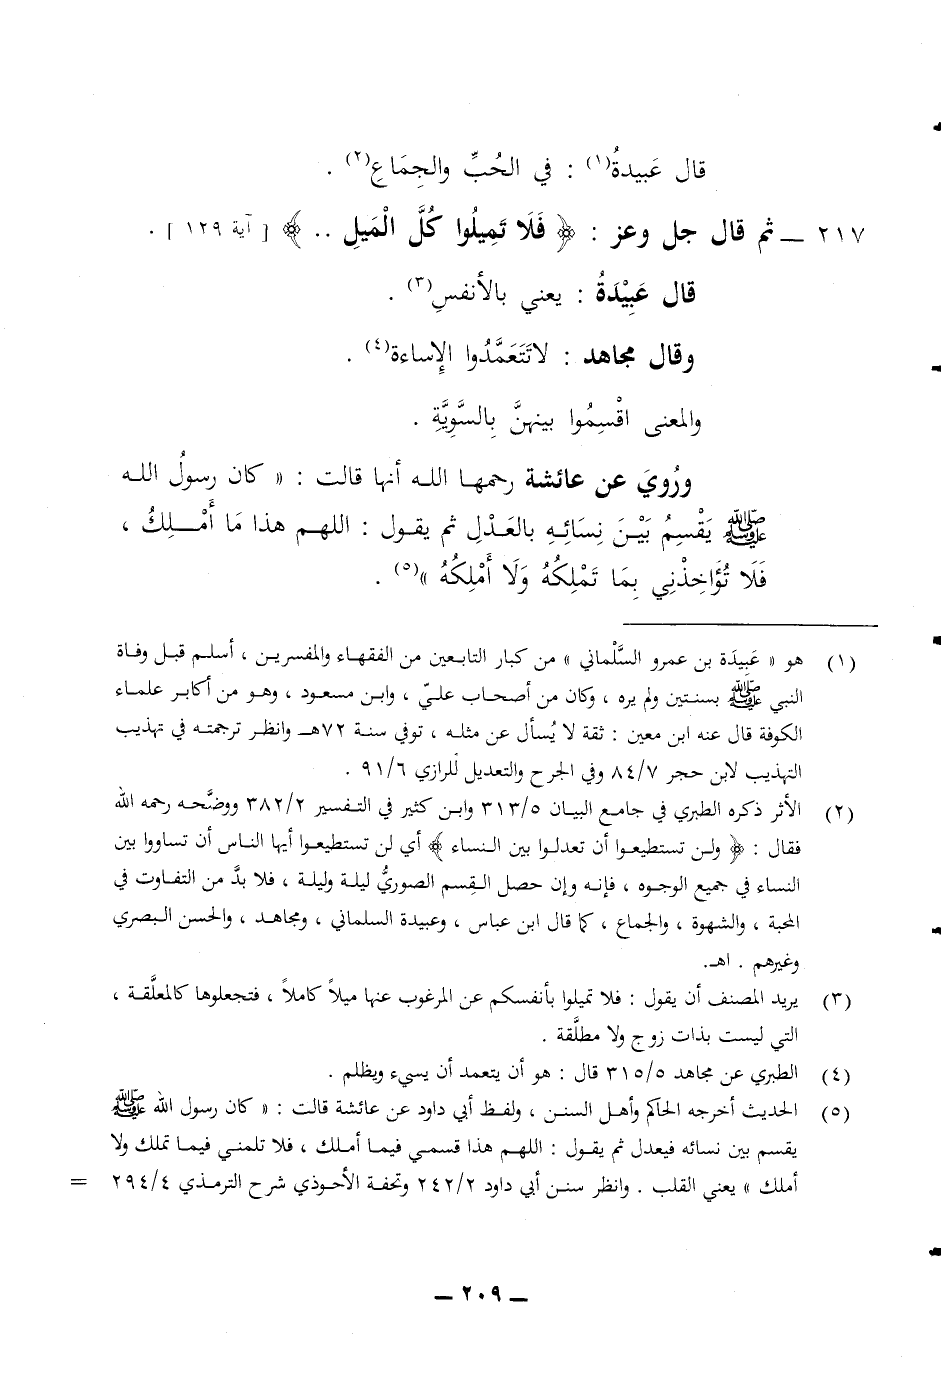 قال عَبيدةُ(١) : في الحُبِّ والجِمَاعِ(٢) .
٢١٧ ــ ثم قال جل وعز : ﴿ فَلَا تَمِيلُوا كُلَّ الْمَيلِ .. ﴾ [ آية ١٢٩ ] .
قال عَبِيْدَةُ : يعني بالأنفسِ(٣) .
وقال مجاهد : لاتَتَعَمَّدُوا الإِساءة(٤) .
والمعنى اقْسِمُوا بينهنَّ بِالسَّوِيَّةِ .
ورُويَ عن عائشة رحمها الله أنها قالت : « كان رسولُ الله
ﷺ يَقْسِمُ بَيْنَ نِسَائِهِ بالعَدْلِ ثم يقول : اللهم هذا مَا أَمْلِكُ ،
فَلَا تُؤَاخِذْنِي بِمَا تَمْلِكُهُ وَلَا أَمْلِكُهُ »(٥) .
(١) هو « عَبِيدَة بن عمرو السَّلْماني » من كبار التابعين من الفقهاء والمفسرين ، أسلم قبل وفاة
النبي ﷺ بسنتين ولم يره ، وكان من أصحاب عليّ ، وابن مسعود ، وهو من أكابر علماء
الكوفة قال عنه ابن معين : ثقة لا يُسأل عن مثله ، توفي سنة ٧٢هـ وانظر ترجمته في تهذيب
التهذيب لابن حجر ٨٤/٧ وفي الجرح والتعديل للرازي ٩١/٦ .
(٢) الأثر ذكره الطبري في جامع البيان ٣١٣/٥ وابن كثير في التفسير ٣٨٢/٢ ووضَّحه رحمه الله
فقال : ﴿ ولن تستطيعوا أن تعدلوا بين النساء ﴾ أي لن تستطيعوا أيها الناس أن تساووا بين
النساء في جميع الوجوه ، فإنه وإن حصل القِسم الصوريُّ ليلة وليلة ، فلا بدَّ من التفاوت في
المحبة ، والشهوة ، والجماع ، كما قال ابن عباس ، وعبيدة السلماني ، ومجاهد ، والحسن البصري
وغيرهم . اهـ.
(٣) يريد المصنف أن يقول : فلا تميلوا بأنفسكم عن المرغوب عنها ميلاً كاملاً ، فتجعلوها كالمعلَّقة ،
التي ليست بذات زوج ولا مطلَّقة .
(٤) الطبري عن مجاهد ٣١٥/٥ قال : هو أن يتعمد أن يسيء ويظلم .
(٥) الحديث أخرجه الحاكم وأهل السنن ، ولفظ أبي داود عن عائشة قالت : « كان رسول الله ﷺ
يقسم بين نسائه فيعدل ثم يقول : اللهم هذا قسمي فيما أملك ، فلا تلمني فيما تملك ولا
أملك » يعني القلب . وانظر سنن أبي داود ٢٤٢/٢ وتحفة الأحوذي شرح الترمذي ٢٩٤/٤ =
ــ ٢٠٩ ــ